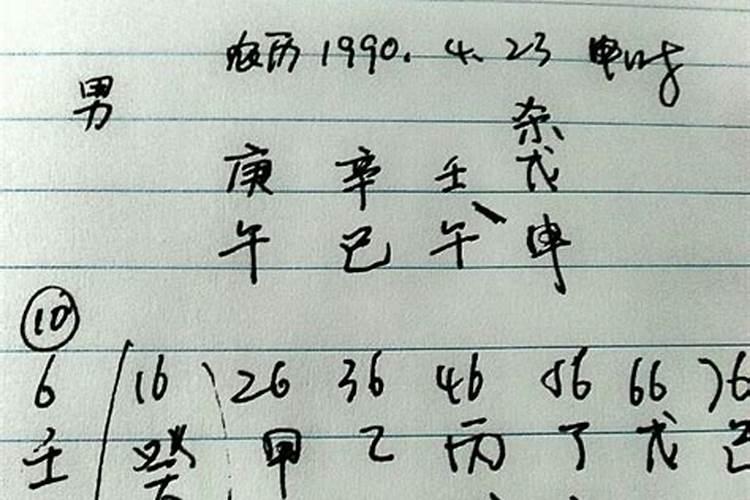 农历1990.4.23 申时
男
杀
庚 辛 壬 戊
午 巳 午 申
10
6 16 26 36 46 56 66 76
壬 癸 甲 乙 丙 丁 戊 己